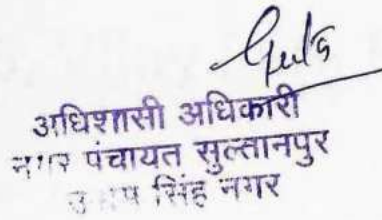 अधिशासी अधिकारी
नगर पंचायत सुल्तानपुर
सिंह नगर